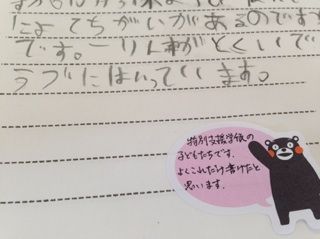 によてちがいがあるのです
です。一りん車がとくいで
ラブにはいっています。
特別支援学級の
子どもたちです。
よくこれだけ書けたと
思います。